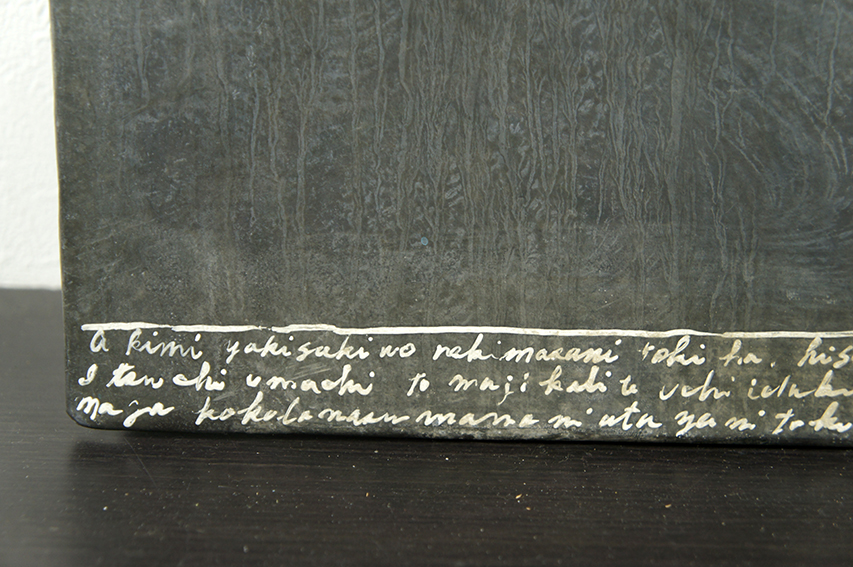 a kimi yakisaki wo nehimasani toki ha. his
I tewchi umachi to maji kali te uchi idaku
naga kokolanasu mama ni uta ya ni toku